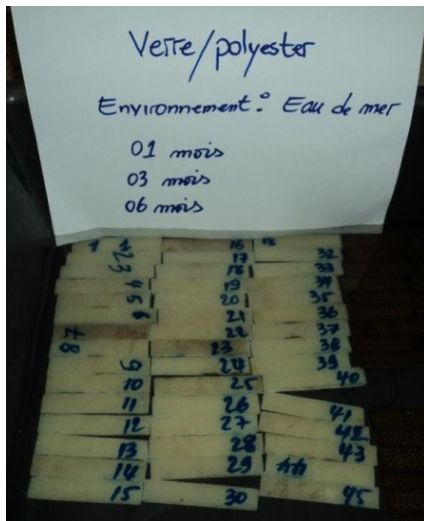 Verre/polyester
Environnement: Eau de mer
01 mois
03 mois
06 mois
1
2
3
4
5
6
7
8
9
10
11
12
13
14
15
16
17
18
19
20
21
22
23
24
25
26
27
28
29
30
32
33
34
35
36
37
38
39
40
41
42
43
44
45